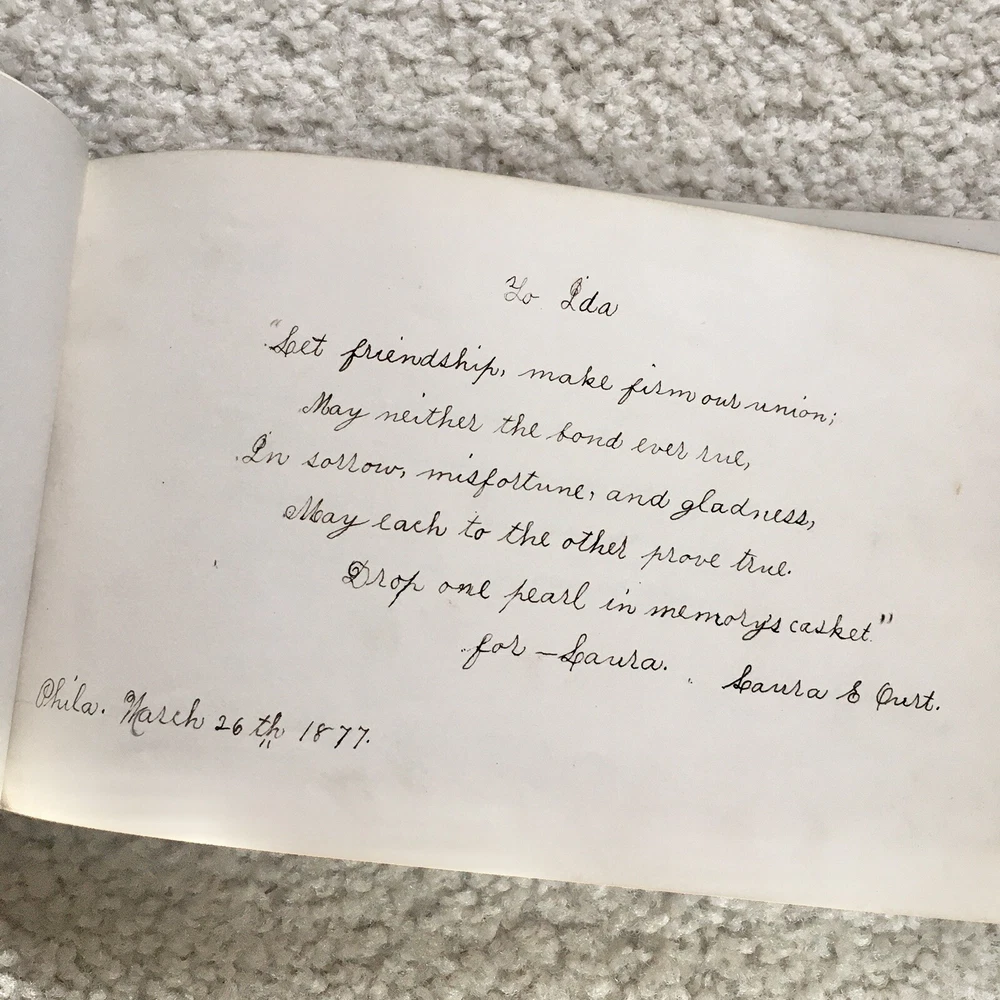 To Ida
"Let friendship, make firm our union;
May neither the bond ever rue,
In sorrow, misfortune, and gladness,
May each to the other prove true.
Drop one pearl in memory's casket."
for – Laura. Laura E
Phila. March 26th 1877.